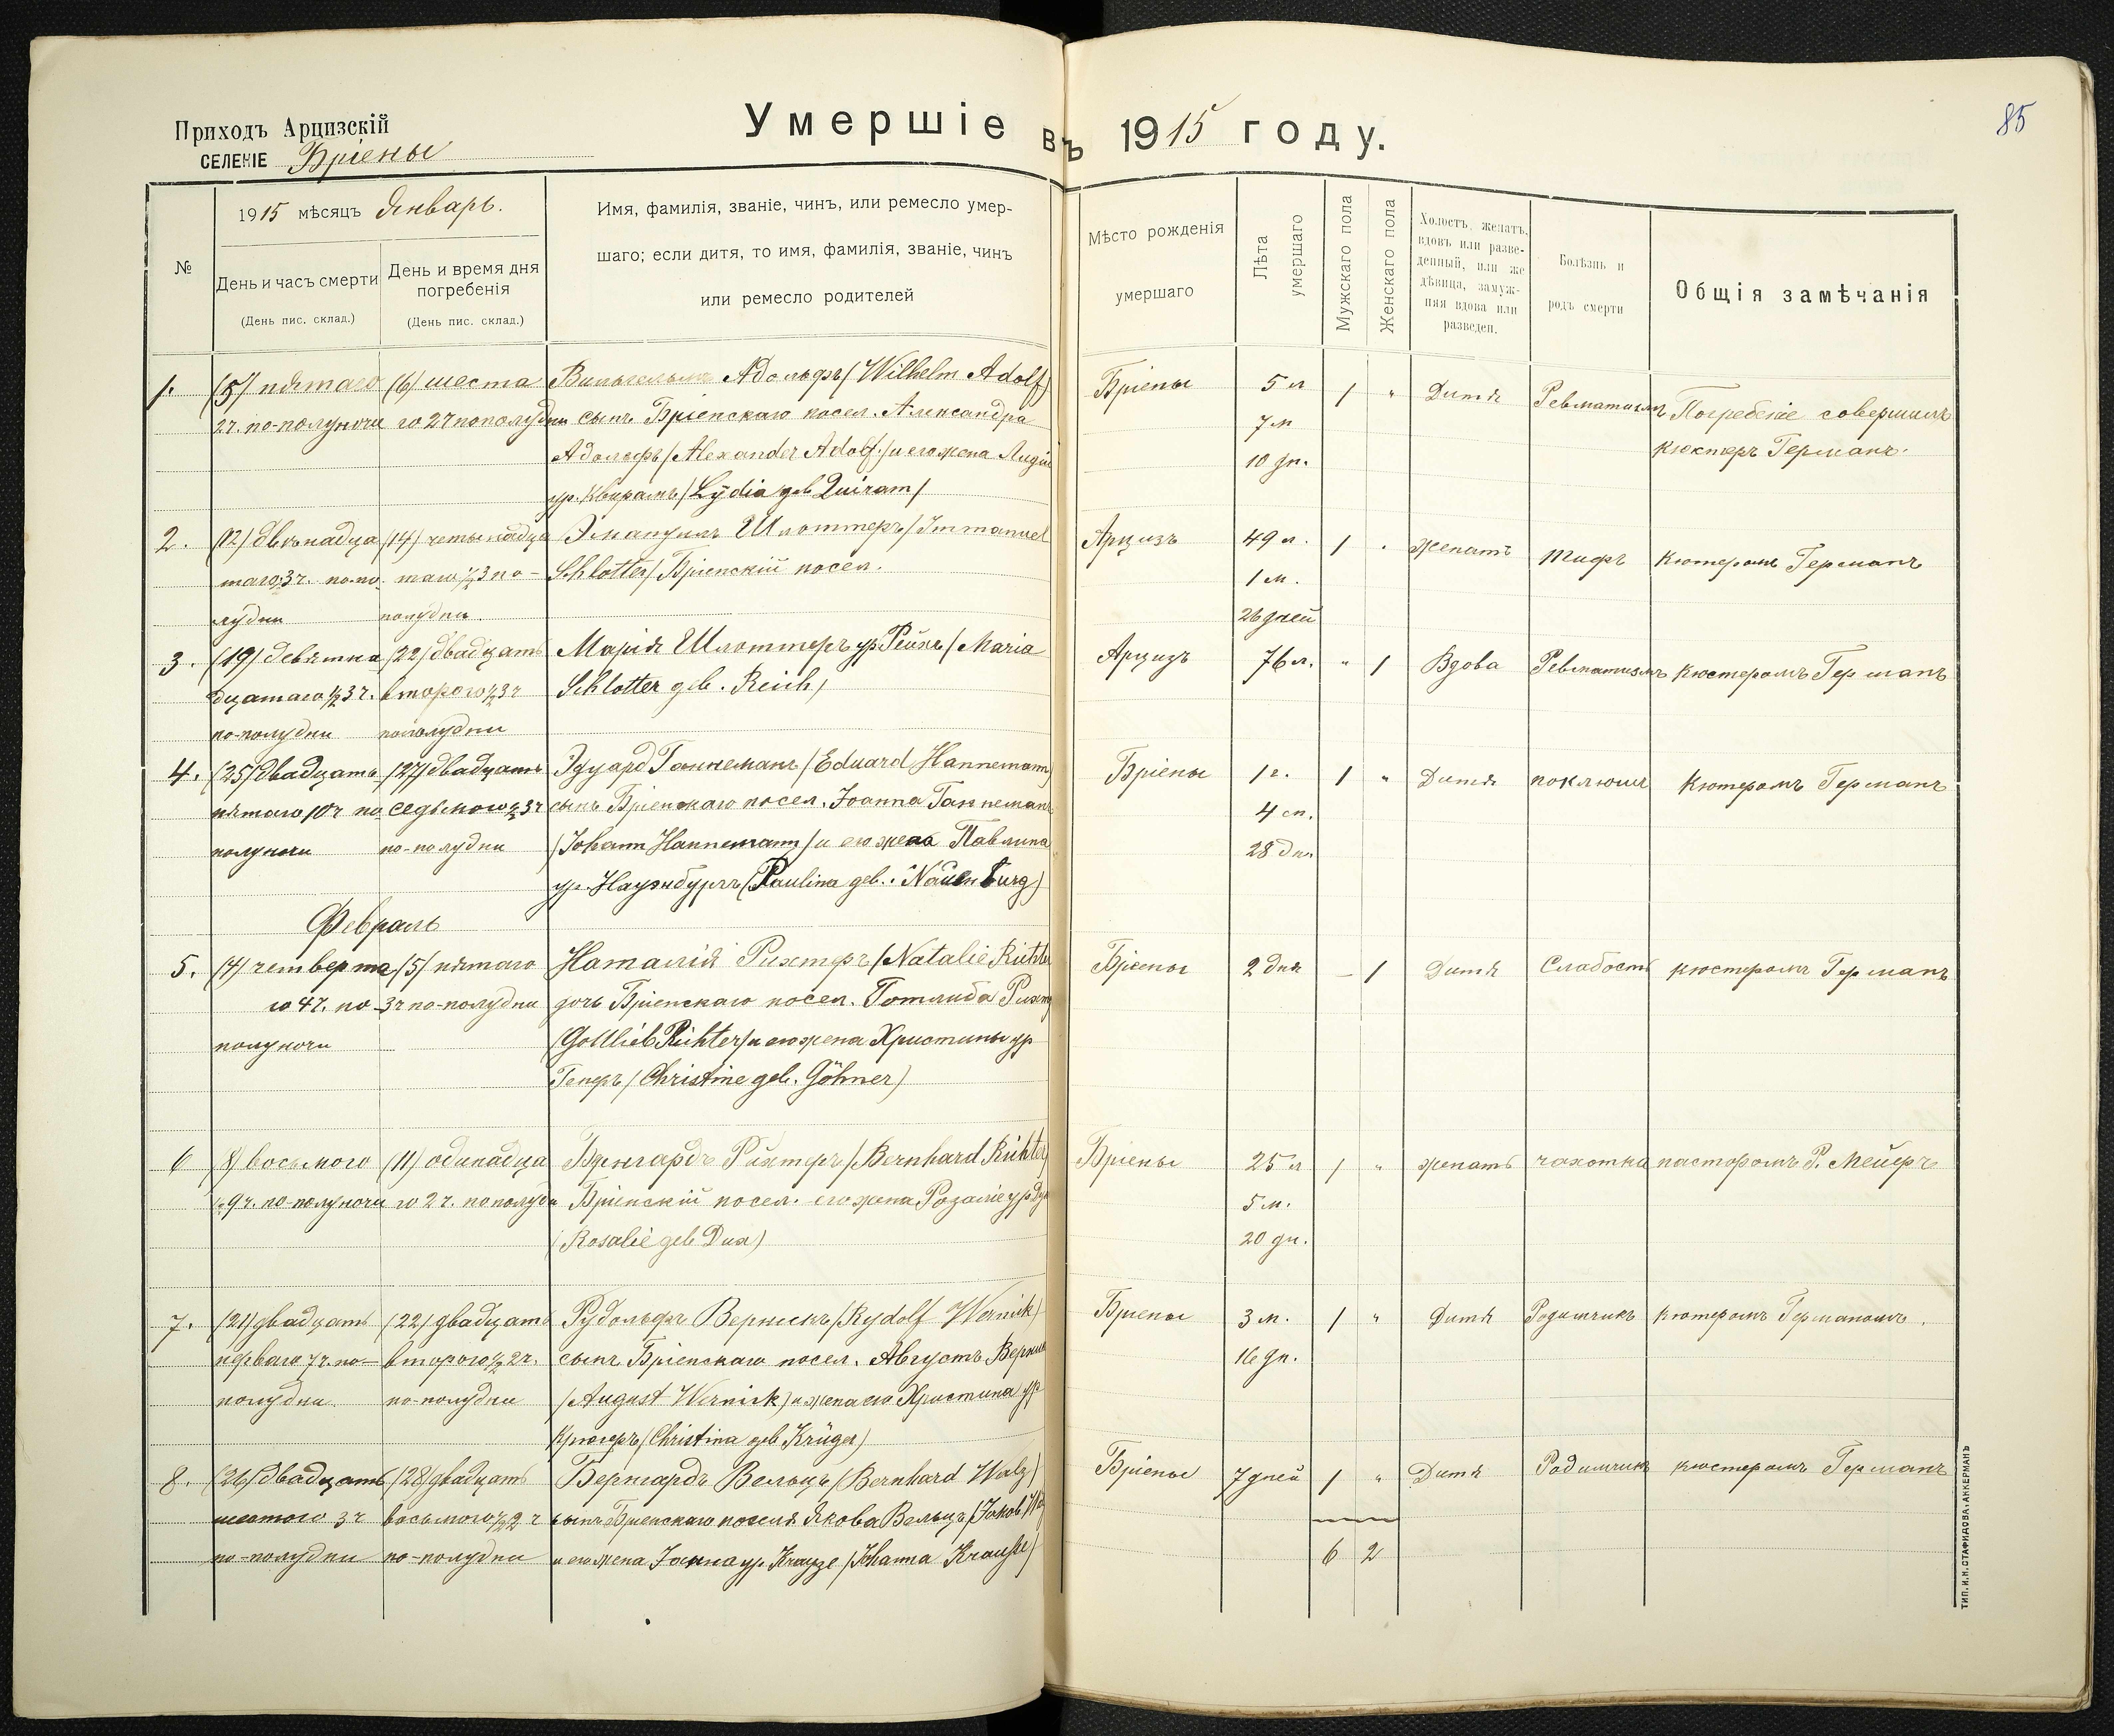 Приходъ Арцизскій
СЕЛЕНІЕ Бріены
Умершіе въ 1915 году.
85
№
1915 мѣсяцъ Январь.
День и часъ смерти
(День пис. склад.)
День и время дня
погребенія
(День пис. склад.)
Имя, фамилія, званіе, чинъ, или ремесло умер-
шаго; если дитя, то имя, фамилія, званіе, чинъ
или ремесло родителей
Мѣсто рожденія
умершаго
Лѣта
умершаго
Мужскаго пола
Женскаго пола
Холостъ, женатъ,
вдовъ или разве-
денный, или же
дѣвица, замуж-
няя вдова или
разведен.
Болѣзнь и
родъ смерти
Общія замѣчанія
1. (5) пятаго (6) шеста Вильгельмъ Адольфъ (Wilhelm Adolf) Бріены 5 л 1 " Дитя Ревматизмъ Погребеніе совершилъ
2ч. по-полуночи го 2ч пополудни сынъ Бріенскаго посел. Александра 7 м кюстеръ Германъ.
Адольфъ (Alexander Adolf) и его жена Лидіи 10 дн.
ур. Квирамъ (Lydia geb Quiram)
2. (12) двѣнадца (14) четырнадца Эмануилъ Шлоттеръ (Immanuel Арцизъ 49 л. 1 " женатъ Тифъ Кютеромъ Германъ
таго 3ч. по-по таго ½3 по- Schlotter) Бріенскій посел. 1 м.
лудни полудни. 26 дней
3. (19) девятна (22) двадцать Марія Шлоттеръ ур. Рейхъ (Maria Арцизъ 76 л. " 1 Вдова Ревматизмъ кюстеромъ Германъ
дцатаго ½3ч. второго ½3ч Schlotter geb. Reich)
по-полудни пополудни
4. (25) двадцать (27) двадцать Эдуард Ганнеманъ (Eduard Hannemann) Бріены 1 г. 1 " Дитя коклюшъ Кютеромъ Германъ
пятаго 10ч по седьмого ½3ч сынъ Бріенскаго посел. Іоанна Ганнеманъ 4 м.
полуночи по-полудни (Johann Hannemann) и его жена Павлина 28 дн.
ур. Науэнбургъ (Paulina geb. Nauenburg)
Февраль
5. (4) четверта (5) пятаго Наталія Рихтеръ (Natalie Richter Бріены 2 дня - 1 Дитя Слабость кюстеромъ Германъ
го 4ч. по 3ч по-полудни дочь Бріенскаго посел. Готлиба Рихтер
полуночи (Gottlieb Richter) и его жена Христины ур
Генеръ (Christine geb. Göhner)
6 (8) восьмого (11) одинадца Бернгардъ Рихтеръ (Bernhard Richter) Бріены 25 л 1 " женатъ чахотка пасторомъ Р. Мейеръ
9ч. по-полуночи го 2ч. пополудни Бріенскій посел. его жена Розаліе ур. 5 м.
(Rosalie geb Dux) 20 дн.
7. (21) двадцать (22) двадцать Рудольфъ Верникъ (Rydolf Wernick) Бріены 3 м. 1 " Дитя Родимчикъ кютеромъ Германомъ.
перваго 7ч. по- второго ½2ч. сынъ Бріенскаго посел. Августъ Верник 16 дн.
полудни. по-полудни (August Wernick) и жена его Христина ур
Крюгеръ (Christina geb Krüger)
8. (26) двадцать (28) двадцать Бернгардъ Вельцъ (Bernhard Welz) Бріены 7 дней 1 " Дитя Родимчикъ кюстеромъ Германъ
шестого 3ч восьмого ½2ч сынъ Бріенскаго поселя Якова Вельцъ (Jakob
по-полудни по-полудни и его жена Іоанна ур. Краузе (Johanna Krauße)
6 2
ТИП. И.Н. СТАФИДОВА, АККЕРМАНЪ